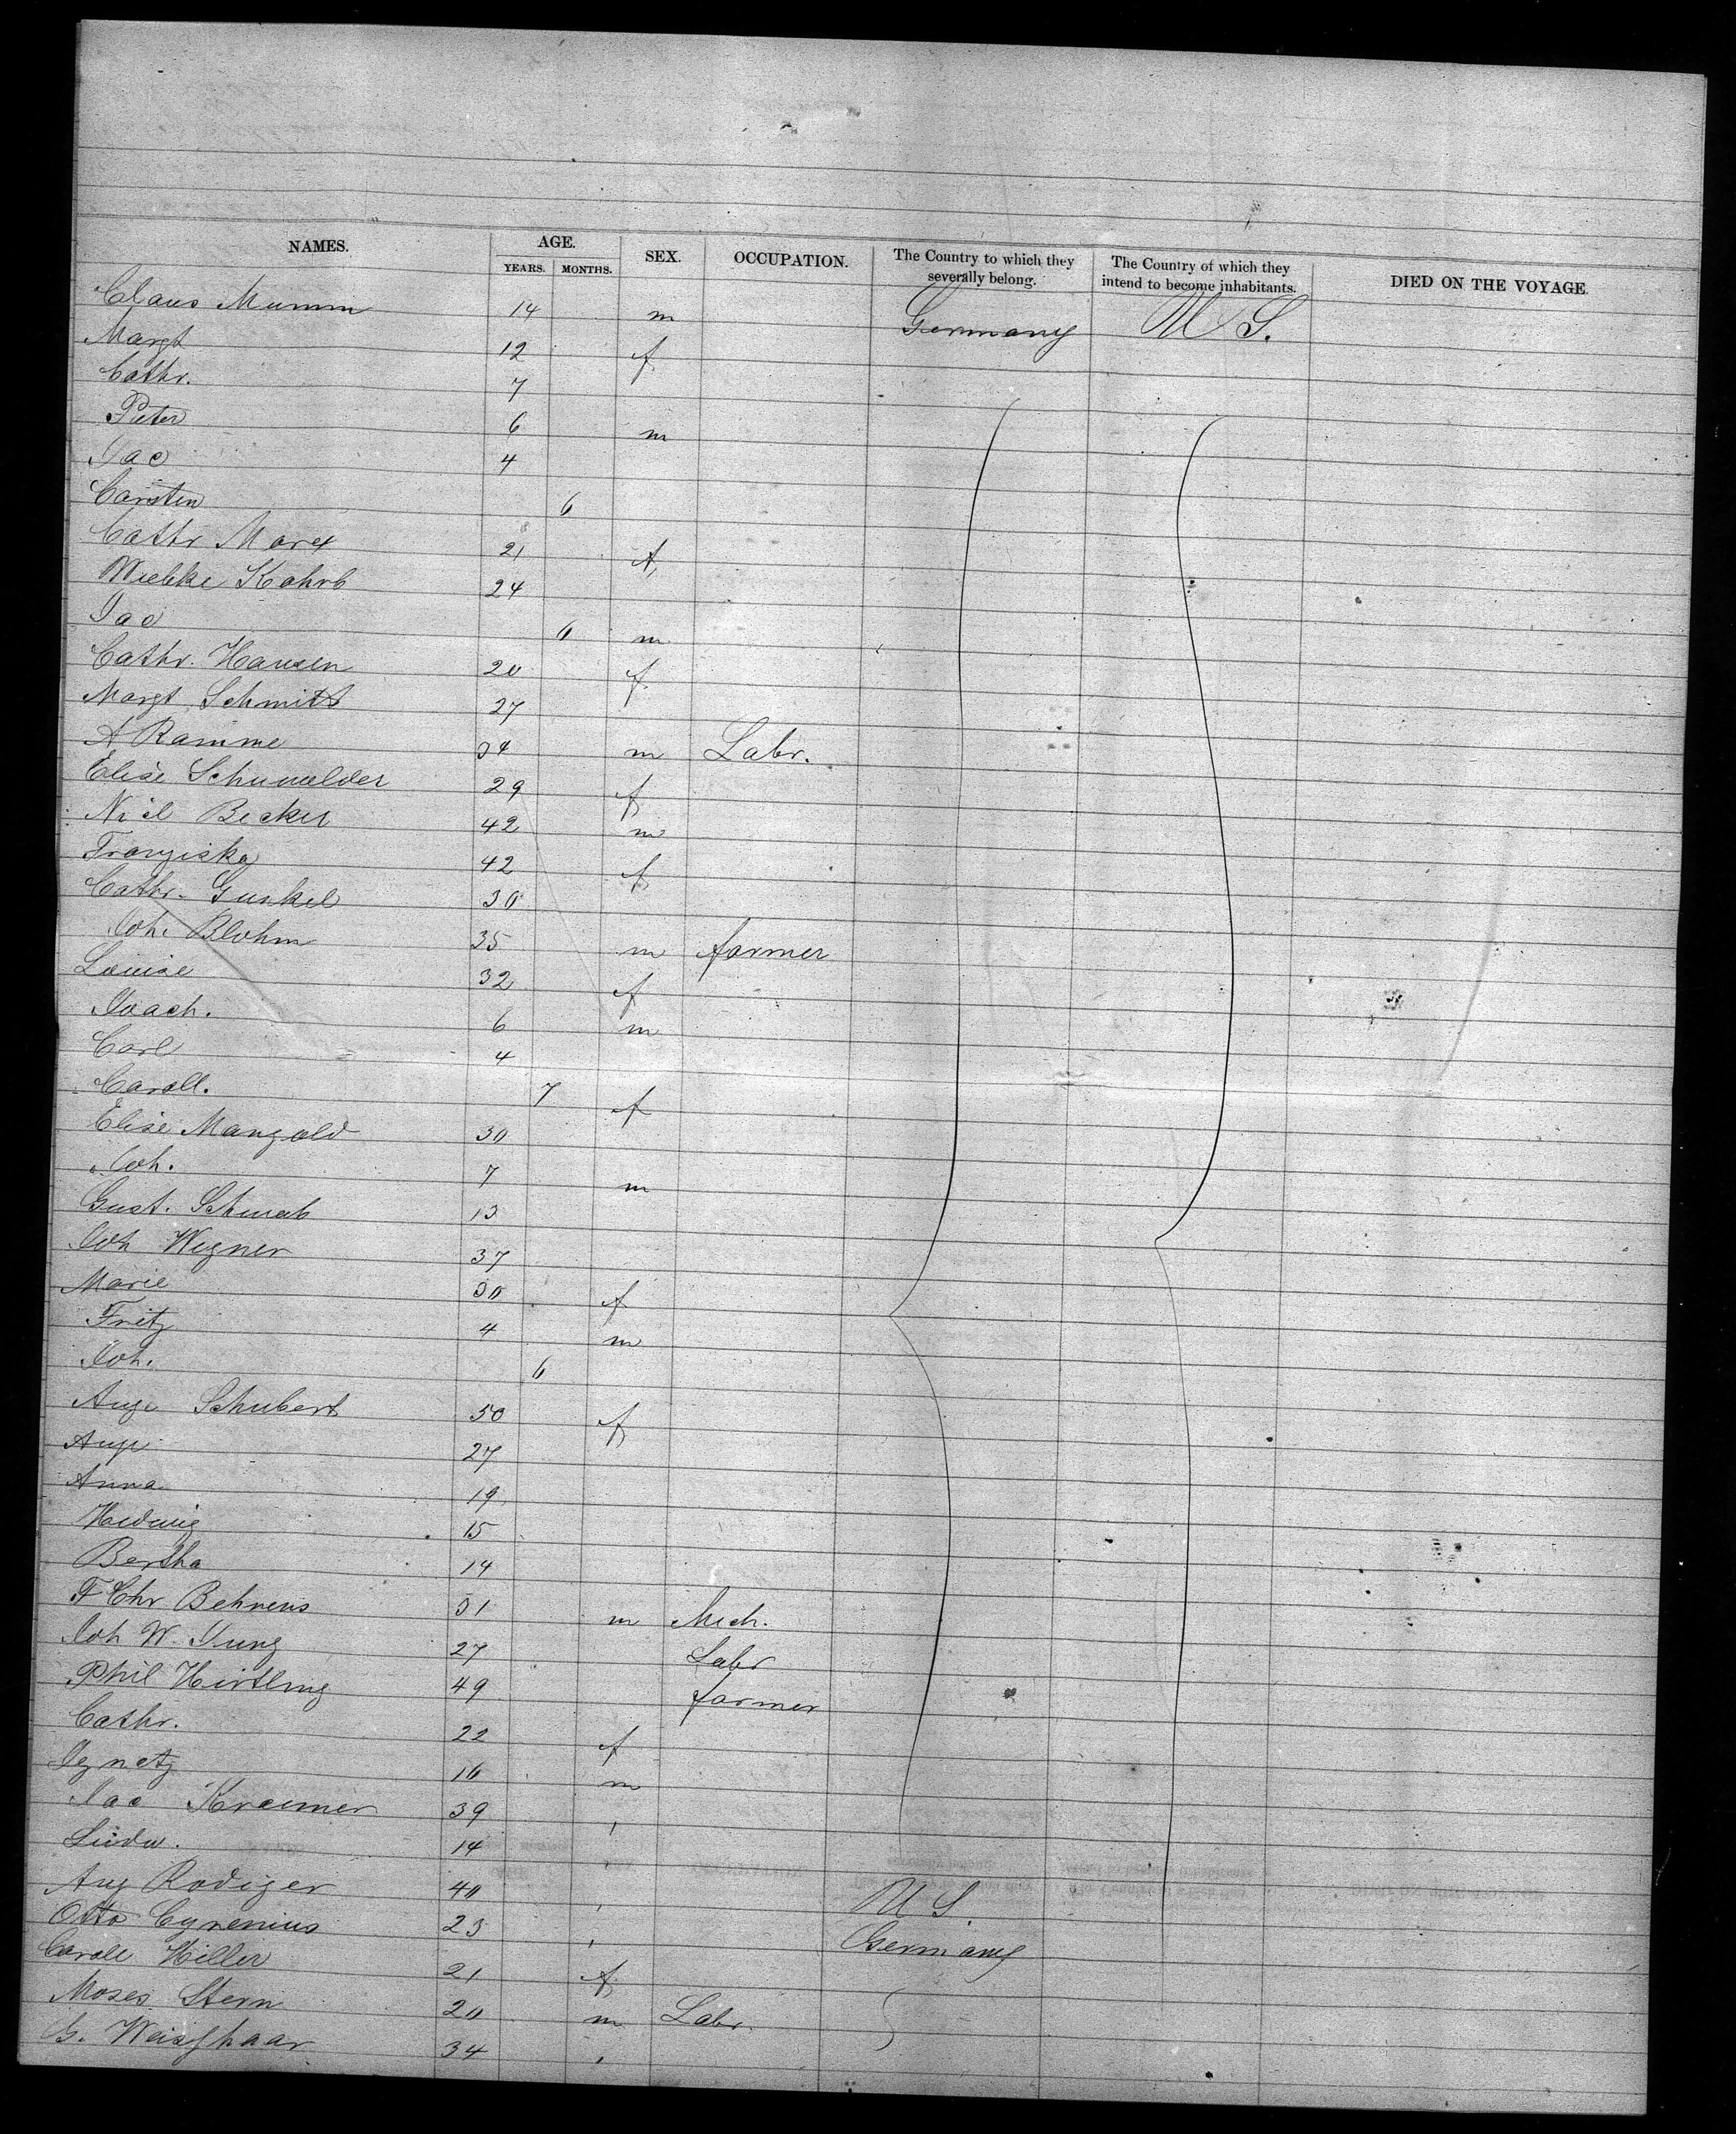 NAMES. AGE. SEX. OCCUPATION. The Country to which they severally belong. The Country of which they intend to become inhabitants. DIED ON THE VOYAGE.
YEARS. MONTHS.
Claus Mumm 14 m Germany U S.
Margt 12 f
Cathr. 7
Peter 6 m
Jac 4
Carsten 6
Cathr Marx 21 f
Wiebke Kahrb 24
Jac 6 m
Cathr. Hansen 20 f
Margt Schmidt 27
A Ramme 34 m Labr.
Elise 29 f
Nicl Becker 42 m
Franziska 42 f
Cathr. Gunkel 30
Joh. Blohm 35 m farmer
Louise 32 f
Joach. 6 m
Carl 4
Caroll. 7 f
Elise Mangold 30
Joh. 7 m
Gust. Schwab 13
Joh Wegner 37
Marie 30 f
Fritz 4 m
Joh. 6
Auge Schubert 50 f
Auge 27
Anna 19
Hedwig 15
Bertha 14
F Chr Behrens 31 m Mech.
Joh W. Jung 27 Labr
Phil Hirtling 49 farmer
Cathr. 22 f
Ignatz 16 m
Jac Kraemer 39 "
Ludw. 14 "
Aug Rodiger 40 " U S.
Otto Cyrenius 23 " Germany
Carole Hiller 21 f
Moses Stern 20 m Labr.
G. Weisshaar 34 "